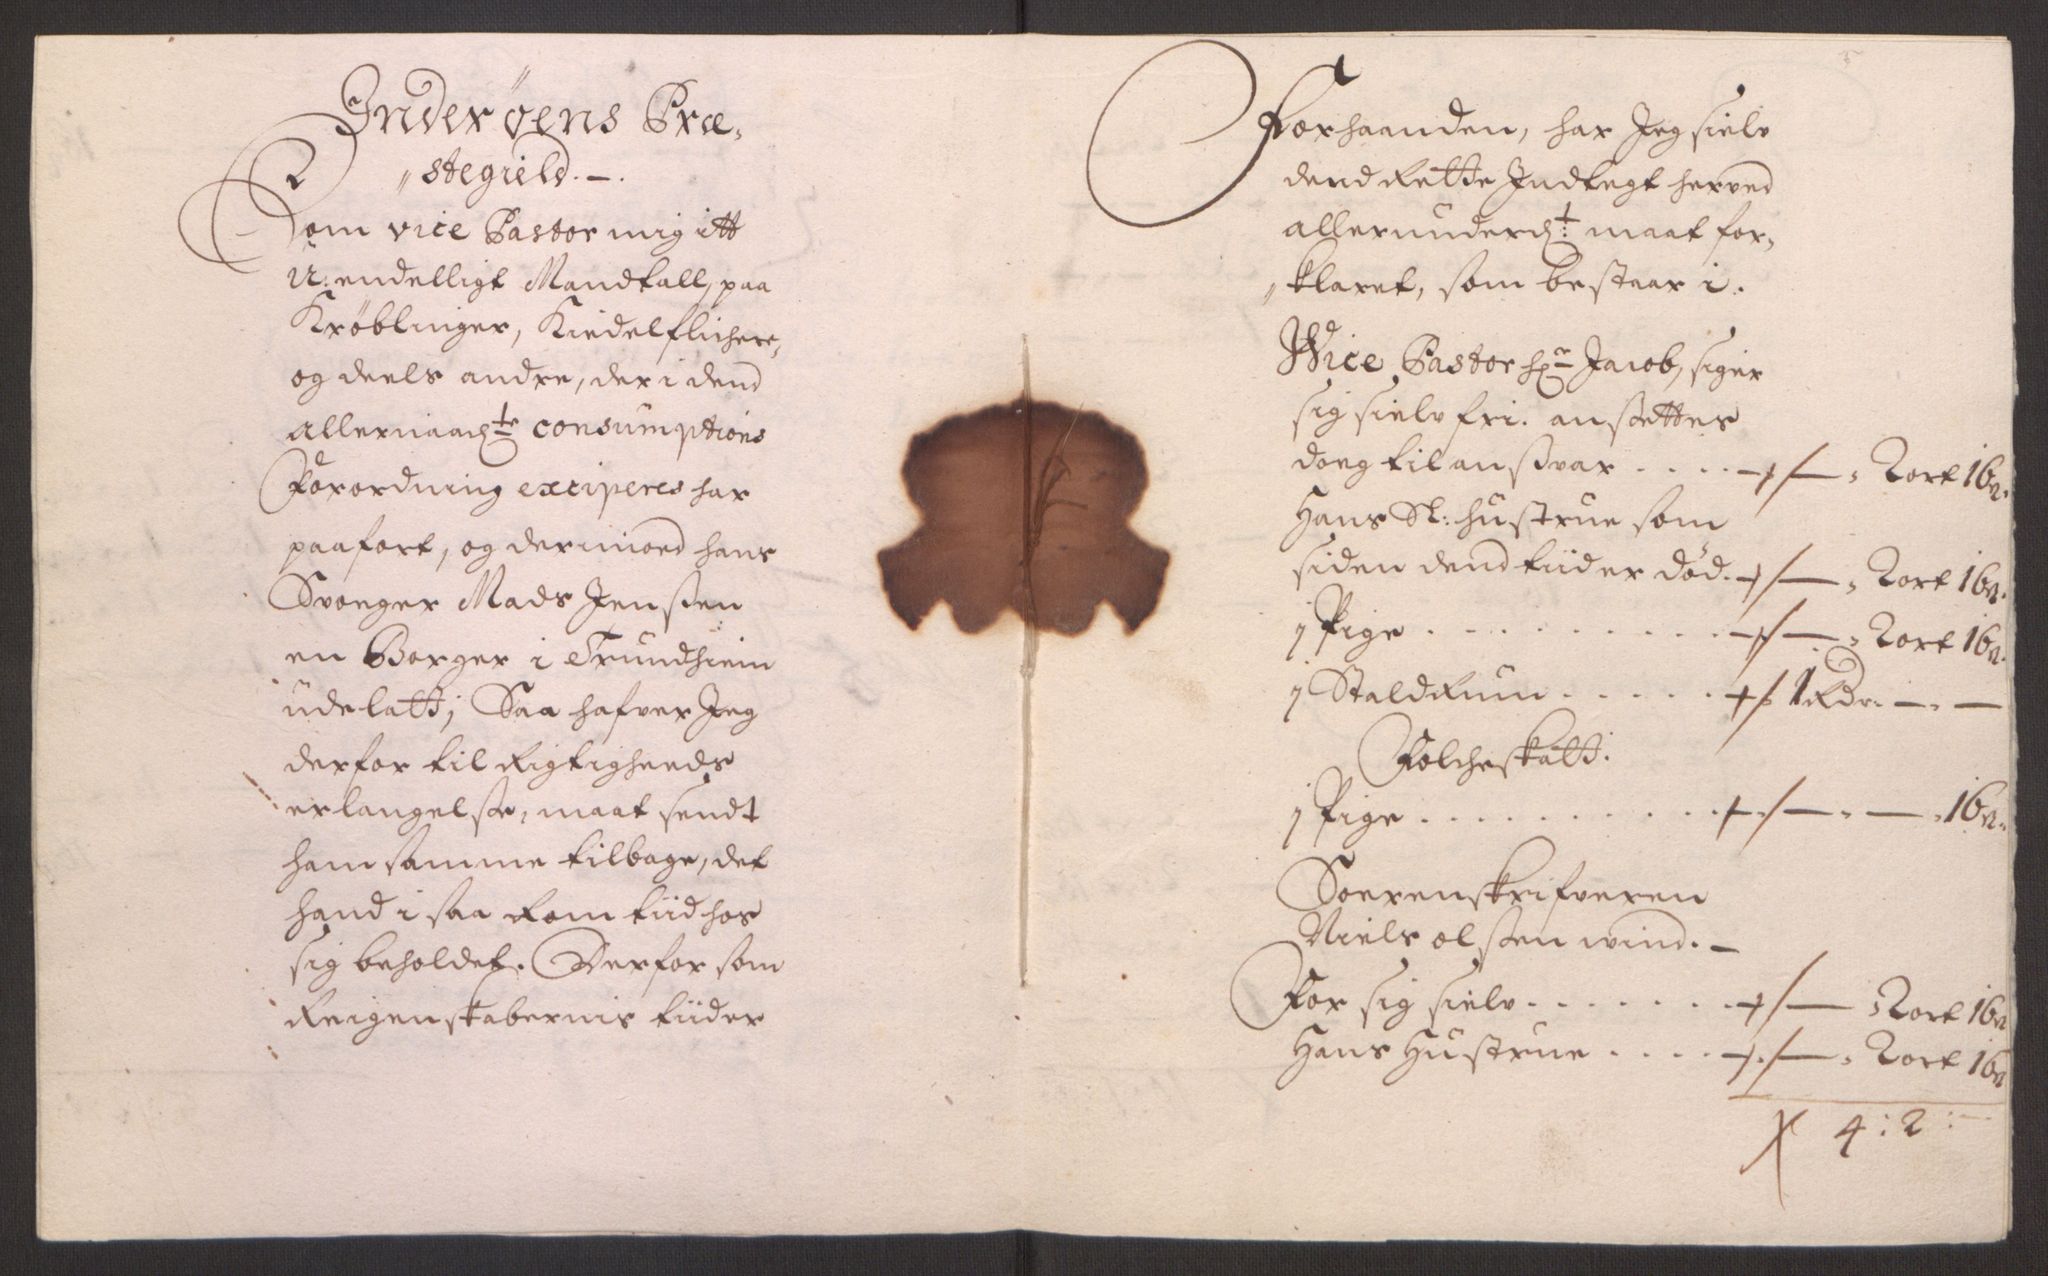 Inderøens Præ-
stegield.
Som vice Pastor mig itt
U:endelligt Mandtall, paa
Krøblinger, Kiedelflichere,
og deels andre, der i dend
allernaadste consumptions
Forordning exciperes har
paafört, og derimoed hans
Svoger Mads Jenssen
en Borger i Trundhiem
udelatt; Saa hafver Jeg
derfor til Rigtigheeds
erlangelsse, maat sendt
ham samme tilbage, det
hand i saa Rom tiid hos
sig beholdet. Derfor som
Reigenskabernis tiider
Forhaanden, har Jeg sielv
dend Rette Indtegt herved
allerunderdst: maat for-
klaret, som bestaar i.
Wice Pastor hr Jacob, siger
sig sielv fri. ansettes
doeg til ansvar . . . . 2 ort 16 s.
Hans Sl: hustrue som
siden dend tiid er död. 2 ort 16 s.
j Pige . . . . . . . . 2 ort 16 s.
j Staldrum . . . . . 1 Rdr. — —
Folcheskatt.
j Pige . . . . . . . . . . — — 16 s.
Soerenskrifveren
Niels olssen wind. —
For sig sielv . . . . . . . 2 ort 16 s
Hans Hustrue . . . . 2 ort 16 s
4 : 2 : —